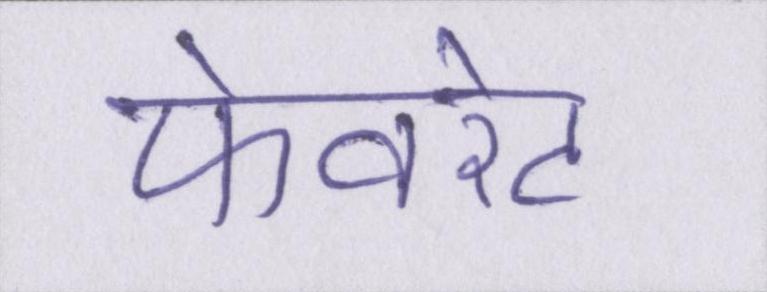 फेवरेट